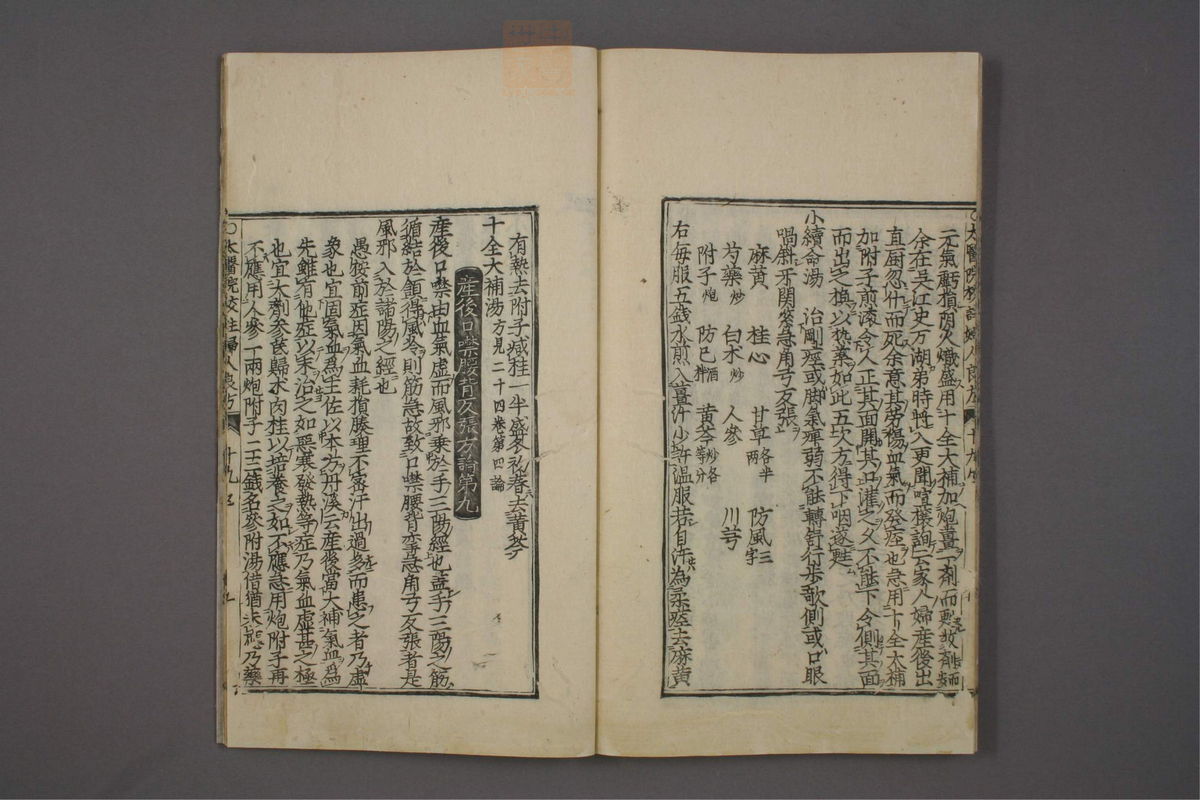 元氣虧損陰火熾盛用十全大補加炮薑二劑而
余在吳江史万湖弟時將入更聞喧襍詢云家人婦産後出
直厨忽什而死余意其勞傷血氣而發痙也急用十全大補
加附子煎滚令人正其面開其口灌之不能下令側其面
而出之換以热藥如此五次方得下咽遂甦
小續命湯 治剛痙或脚氣痺弱不能轉舒行歩歌側或口眼
喎斜牙関緊急角弓反張
麻黄 桂心 甘草各半兩 防風三字
芍藥炒 白术炒 人參 川芎
附子炮 防已酒拌 黄芩炒各等分
右每服五錢水煎入薑汁少許温服若自汗為柔痙去麻黄
有熱去附子減桂一半盛冬初春去黄芩
十全大補湯方見二十四卷第四論
産後口噤腰背反張方論第九
産後口噤由血氣虛而風邪乗於手三陽經也蓋手三陽之筋
循結於頷得風冷則筋急故致口噤腰背攣急角弓反張者是
風邪入於諸陽之經也
愚按前症因氣血耗損腠理不密汗出過多而患之者乃虛
象也宜固氣血爲主佐以本方丹溪云産後當大補氣血爲
先雖有他症以末治之如惡寒發熱等症乃氣血虛甚之極
也宜大劑参芪歸朮肉桂以培養之如不應急用炮附子再
不應用人參一兩炮附子二三錢名參附湯倘猶未應乃藥
〇太醫院校註婦人良方 十九